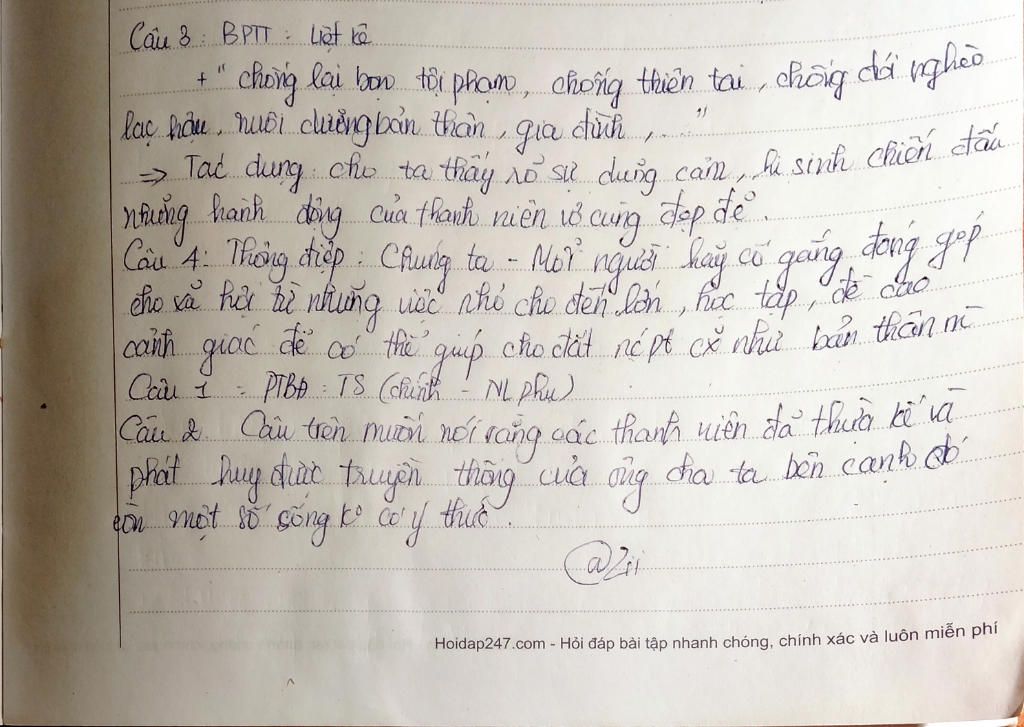 Câu 3: BPTT: Liệt kê
+ " chống lại bọn tội phạm, chống thiên tai, chống đói nghèo
lạc hậu, nuôi dưỡng bản thân, gia đình, ... "
=> Tác dụng: cho ta thấy rõ sự dũng cảm, hi sinh chiến đấu
những hành động của thanh niên vô cùng đẹp đẽ.
Câu 4: Thông điệp: Chúng ta - Mỗi người hãy cố gắng đóng góp
cho xã hội từ những việc nhỏ cho đến lớn, học tập, đề cao
cảnh giác để có thể giúp cho đất nc pt cx như bản thân m
Câu 1: PTBĐ: TS (chính - NL phụ)
Câu 2. Câu trên muốn nói rằng các thanh niên đã thừa kế và
phát huy được truyền thống của ông cha ta bên cạnh đó
còn một số sống ko có ý thức.
@Zii
Hoidap247.com - Hỏi đáp bài tập nhanh chóng, chính xác và luôn miễn phí